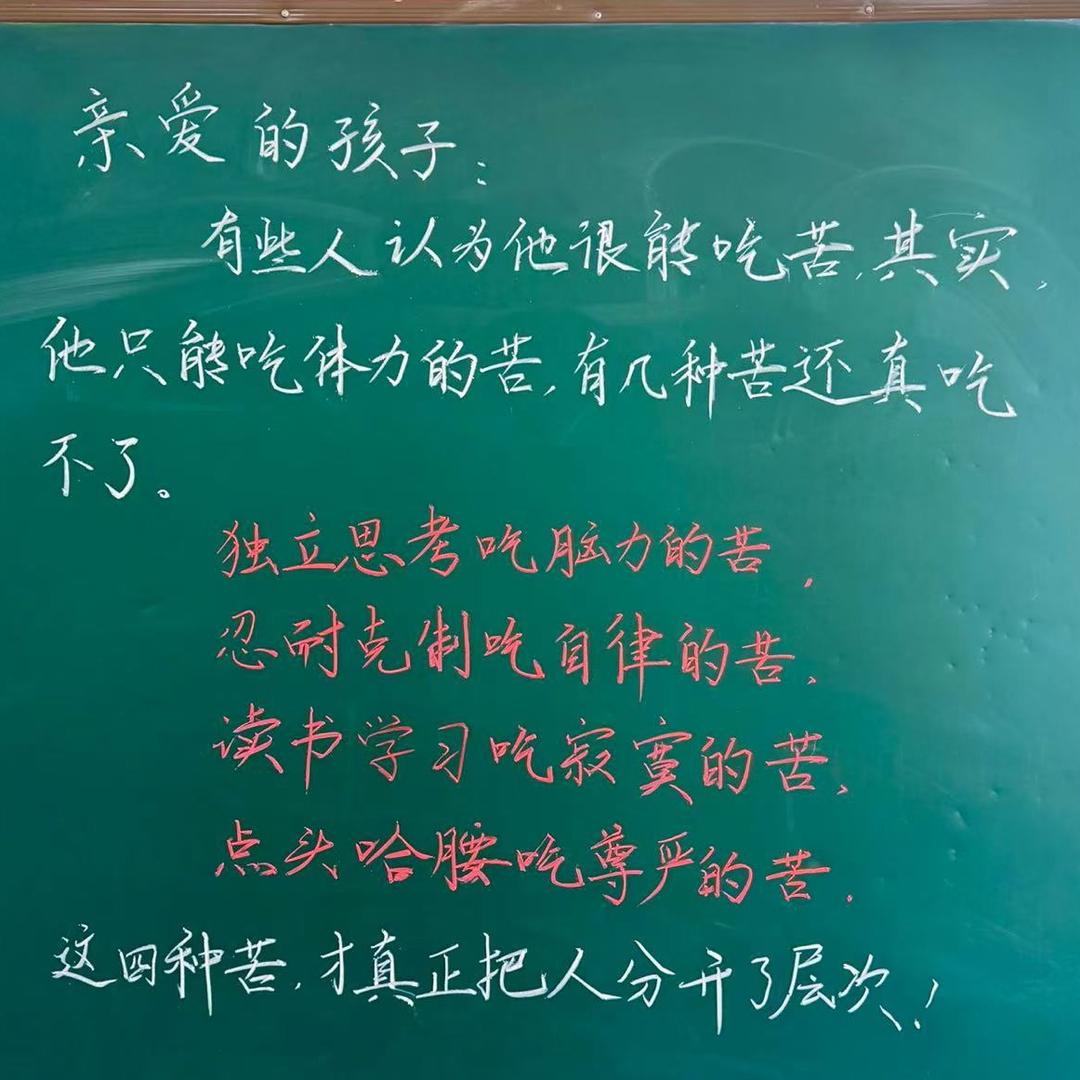 亲爱的孩子:
有些人认为他很能吃苦,其实,
他只能吃体力的苦,有几种苦还真吃
不了。
独立思考吃脑力的苦,
忍耐克制吃自律的苦,
读书学习吃寂寞的苦,
点头哈腰吃尊严的苦.
这四种苦,才真正把人分开了层次!